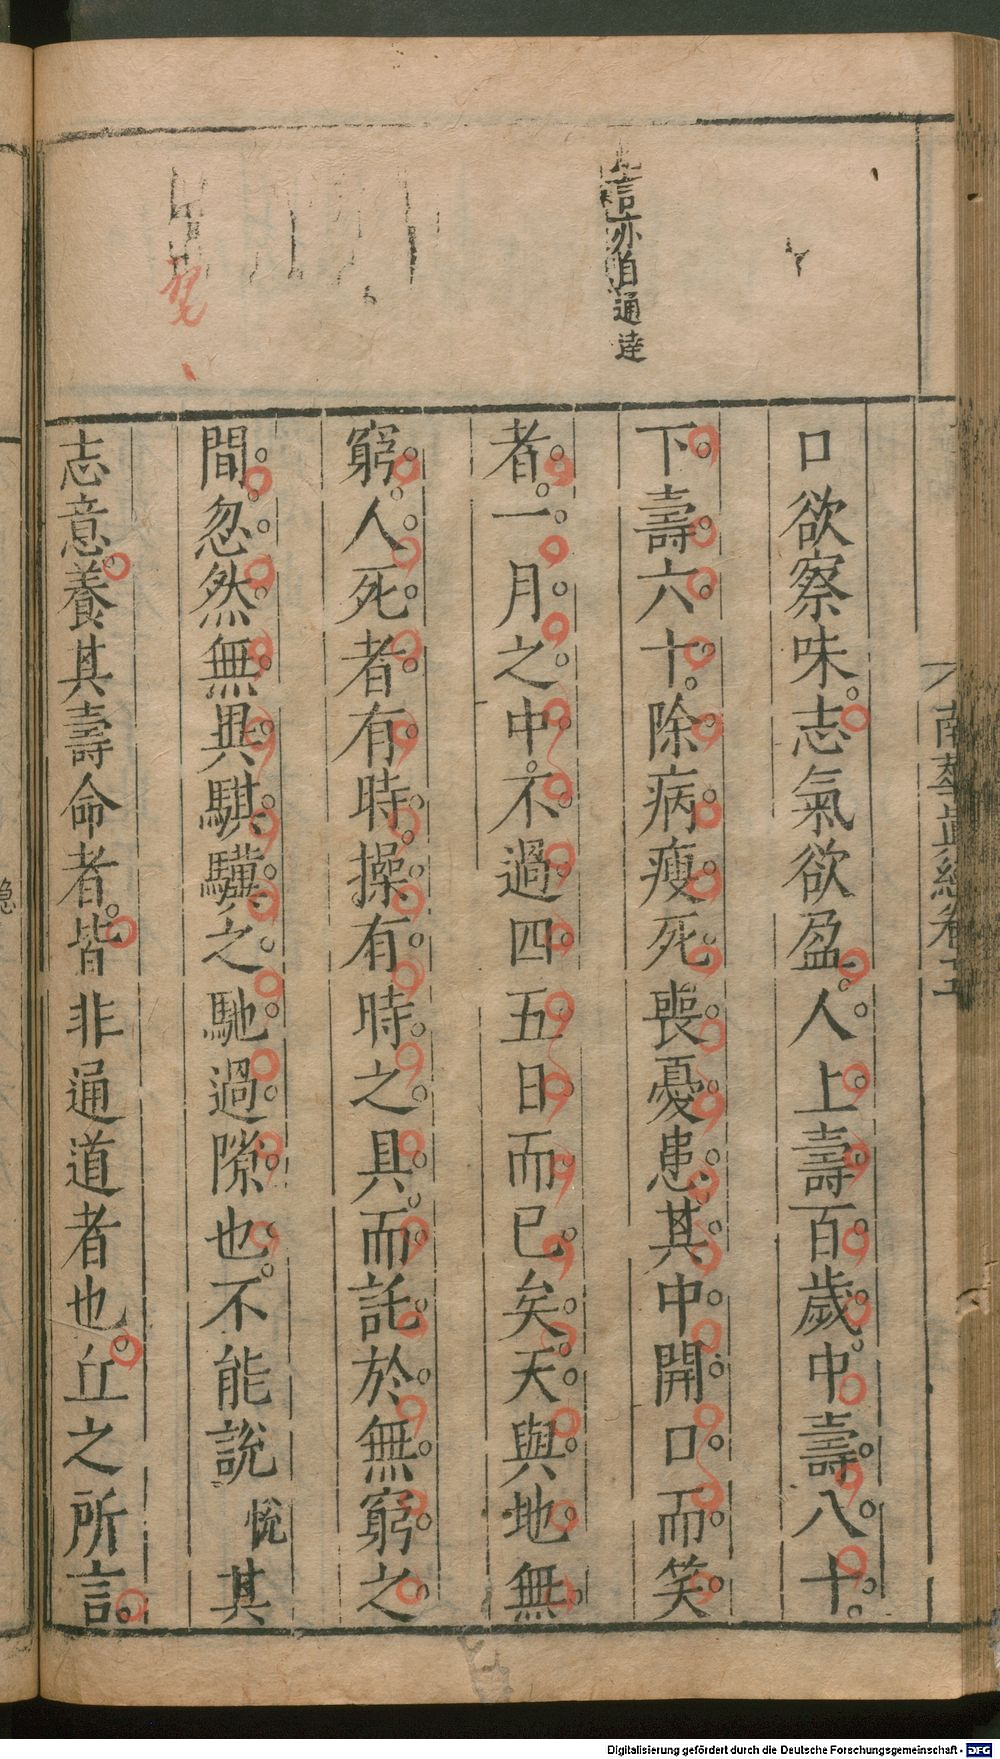 言亦自通達
口欲察味志氣欲盈人上壽百歲中壽八十
下壽六十除病瘦死喪憂患其中開口而笑
者一月之中不過四五日而已矣天與地無
窮人死者有時操有時之具而託於無窮之
間忽然無異騏驥之馳過隙也不能說悅其
志意養其壽命者皆非通道者也丘之所言
南華眞經卷五
Digitalisierung gefördert durch die Deutsche Forschungsgemeinschaft - DFG